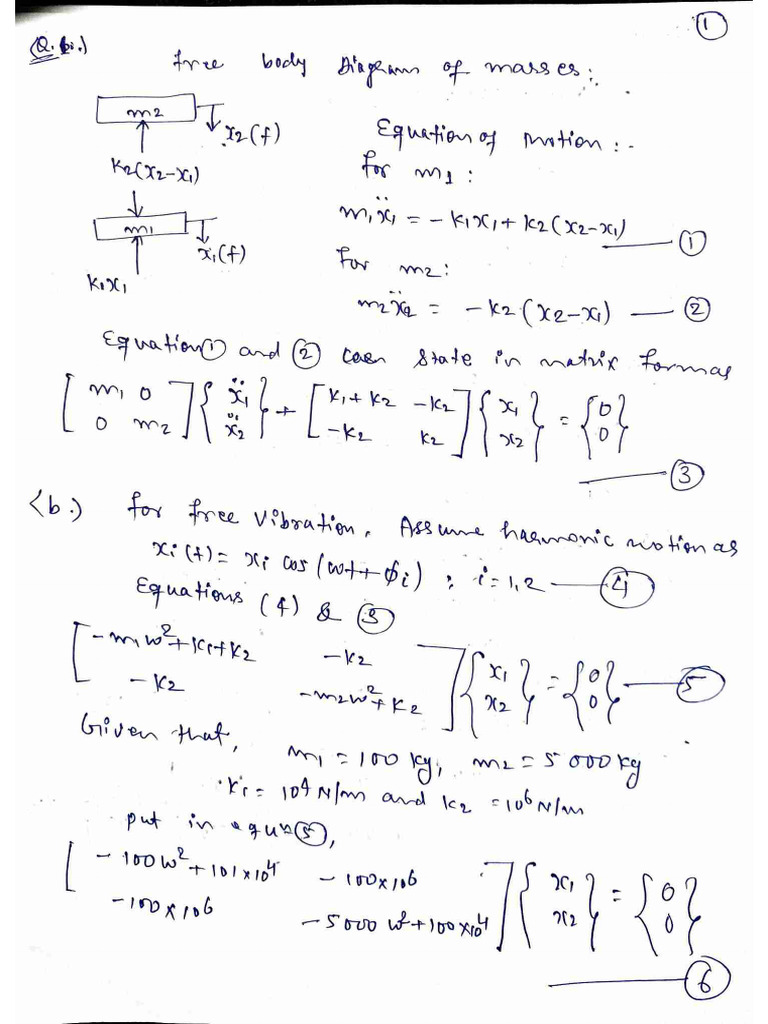 ①
(Q. 6i.)
free body Diagram of masses:
m2
x2(f)
K2(x2-x1)
m1
x1(f)
K1x1
Equation of motion :-
for m1 :
m1ẍ1 = -K1x1 + K2(x2-x1) — ①
For m2:
m2ẍ2 = -K2(x2-x1) — ②
Equation ① and ② can state in matrix form as
[ m1 0 ; 0 m2 ] { ẍ1 ; ẍ2 } + [ K1+K2 -K2 ; -K2 K2 ] { x1 ; x2 } = { 0 ; 0 }
— ③
(b.) for free vibration, Assume harmonic motion as
xi(t) = xi cos(wt+ϕi) ; i=1,2 — ④
Equations (4) & ③
[ -m1w²+K1+K2 -K2 ; -K2 -m2w²+K2 ] { x1 ; x2 } = { 0 ; 0 } — ⑤
Given that,
m1 = 100 kg, m2 = 5000 kg
K1 = 10⁴ N/m and K2 = 10⁶ N/m
put in equn ⑤,
[ -100w²+101x10⁴ -100x10⁶ ; -100x10⁶ -5000w²+100x10⁴ ] { x1 ; x2 } = { 0 ; 0 }
— ⑥